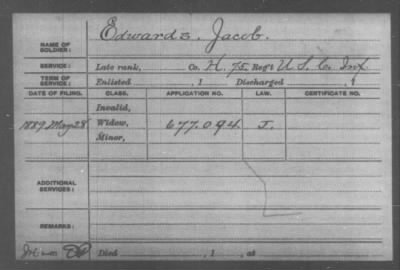 NAME OF SOLDIER: Edwards, Jacob.
SERVICE: Late rank, Co. H, 75 Reg't U. S. C. Inf
TERM OF SERVICE: Enlisted , 1 Discharged , 1
DATE OF FILING. CLASS. APPLICATION NO. LAW. CERTIFICATE NO.
Invalid,
1889 May 28 Widow, 677.094. J.
Minor,
ADDITIONAL SERVICES:
REMARKS:
Died , 1 , at